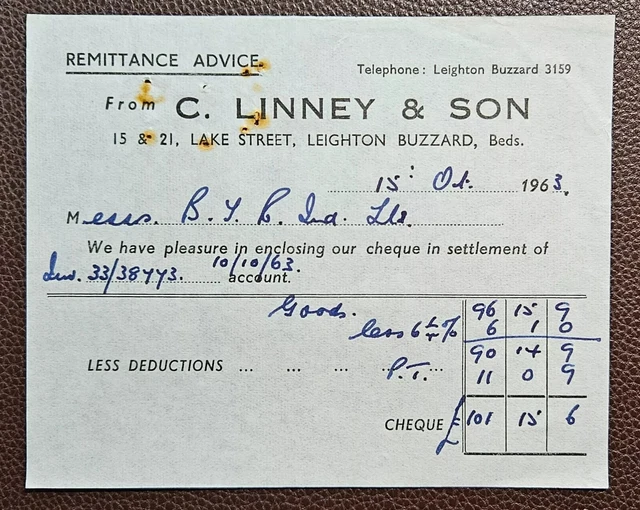 REMITTANCE ADVICE.
Telephone: Leighton Buzzard 3159
From C. LINNEY & SON
15 & 21, LAKE STREET, LEIGHTON BUZZARD, Beds.
15: Oct. 1963.
Messrs. B. Y. R. Ind. Ltd.
We have pleasure in enclosing our cheque in settlement of
Inv. 33/38443. 10/10/63. account.
Goods. 96 15 9
less 6¼% 6 1 0
90 14 9
LESS DEDUCTIONS ... ... ... P.T. 11 0 9
CHEQUE £ 101 15 6